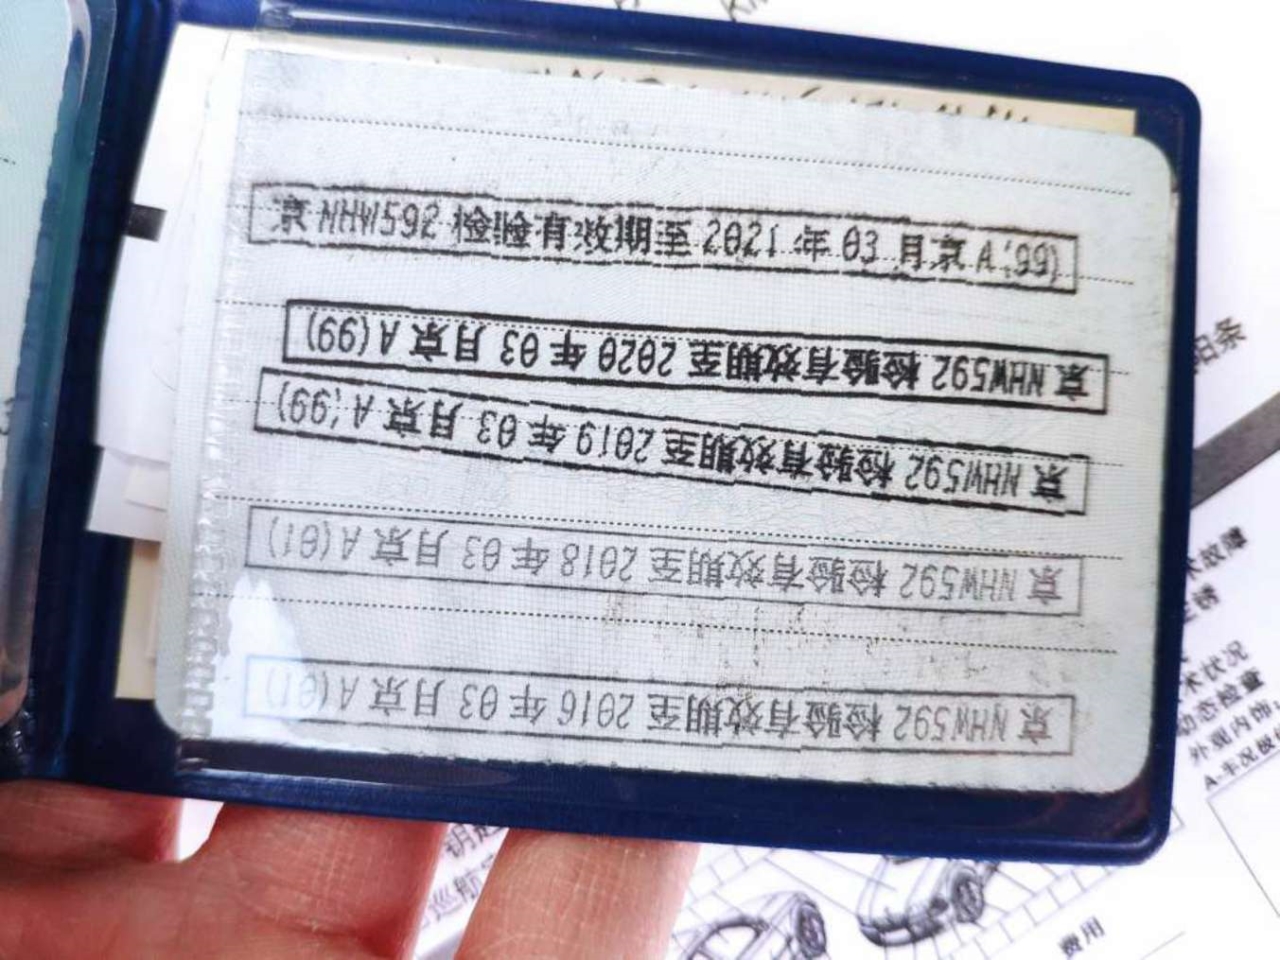 京NHW592 检验有效期至2021年03月京A(99)
京NHW592 检验有效期至2020年03月京A(99)
京NHW592 检验有效期至2019年03月京A(99)
京NHW592 检验有效期至2018年03月京A(01)
京NHW592 检验有效期至2016年03月京A(01)
阳条
术故障
术状况
动态检查
外观内饰
钥匙
巡航
费用